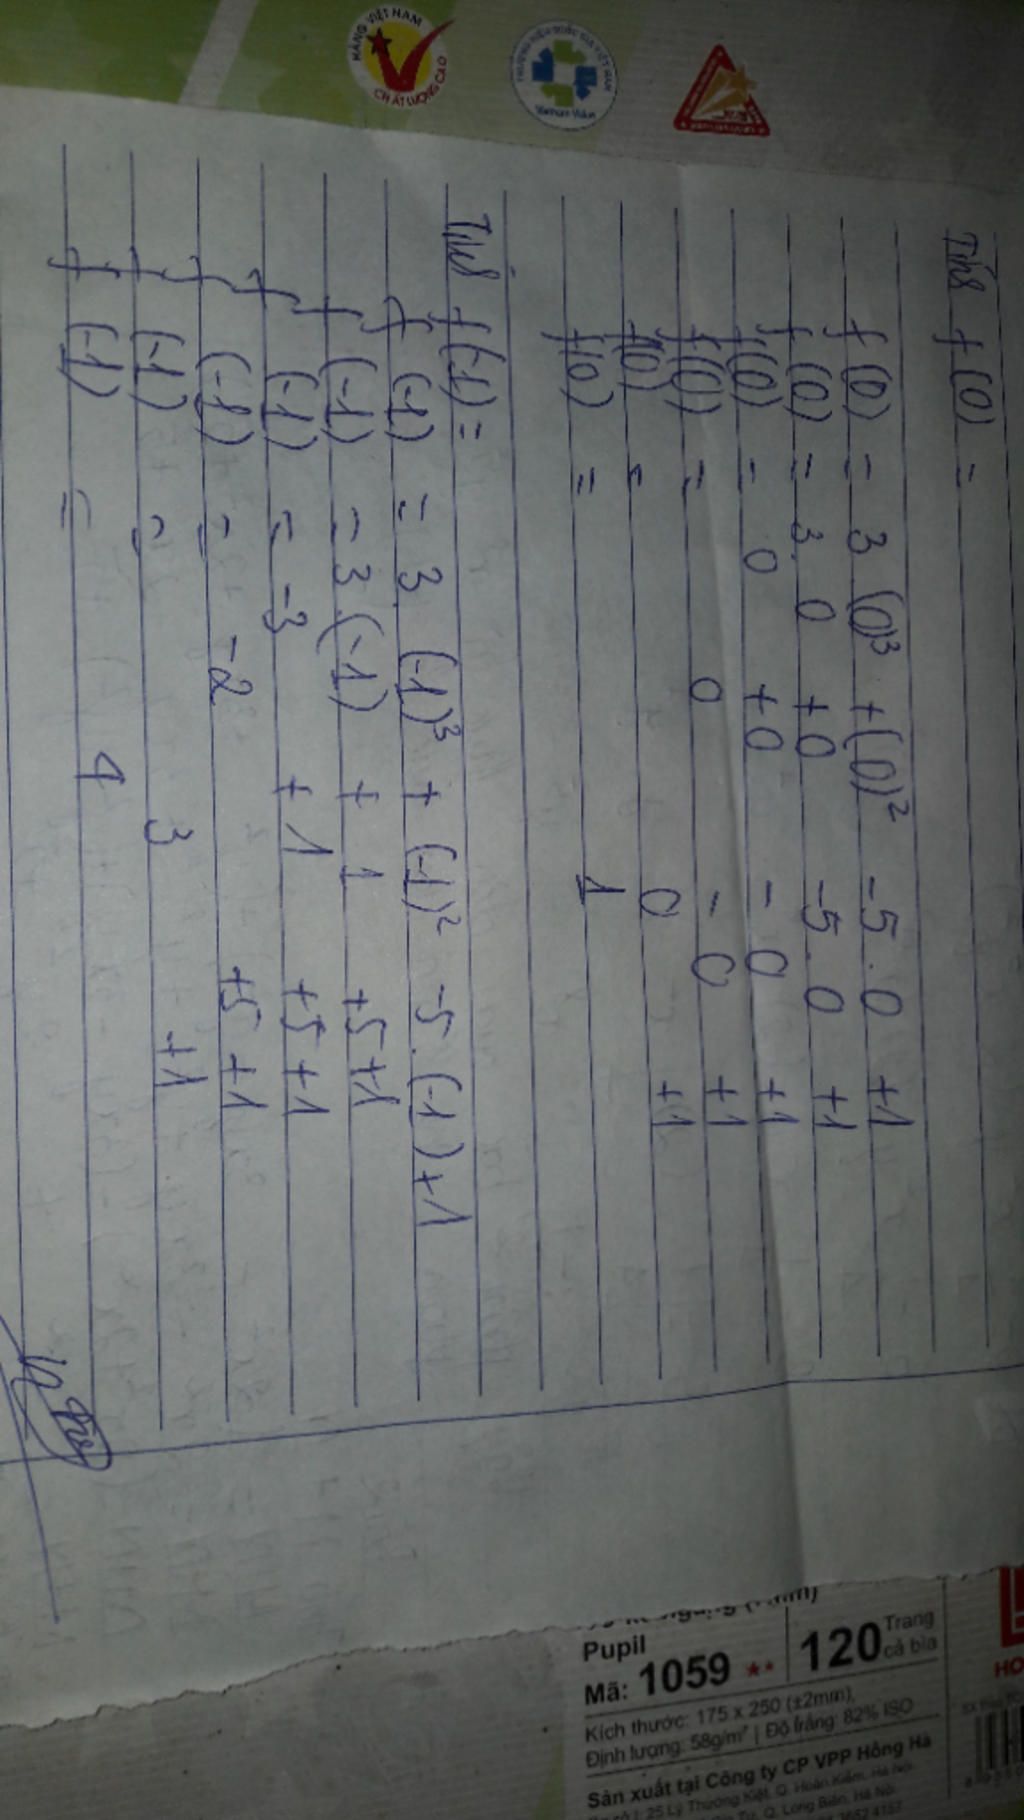 HÀNG VIỆT NAM
CHẤT LƯỢNG CAO
Tính f(0) =
f(0) = 3.(0)³ + (0)² - 5.0 + 1
f(0) = 3.0 + 0 - 5.0 + 1
f(0) = 0 + 0 - 0 + 1
f(0) = 0 - 0 + 1
f(0) = 0 + 1
f(0) = 1
Tính f(-1) =
f(-1) = 3.(-1)³ + (-1)² - 5.(-1) + 1
f(-1) = 3.(-1) + 1 + 5 + 1
f(-1) = -3 + 1 + 5 + 1
f(-1) = -2 + 5 + 1
f(-1) = 3 + 1
f(-1) = 4
Pupil
Mã: 1059
120 Trang
cả bìa
Kích thước: 175 x 250 (±2mm),
Định lượng: 58g/m² | Độ trắng: 82% ISO
Sản xuất tại Công ty CP VPP Hồng Hà
25 Lý Thường Kiệt, Q. Hoàn Kiếm, Hà Nội.
Q. Long Biên, Hà Nội.
HO